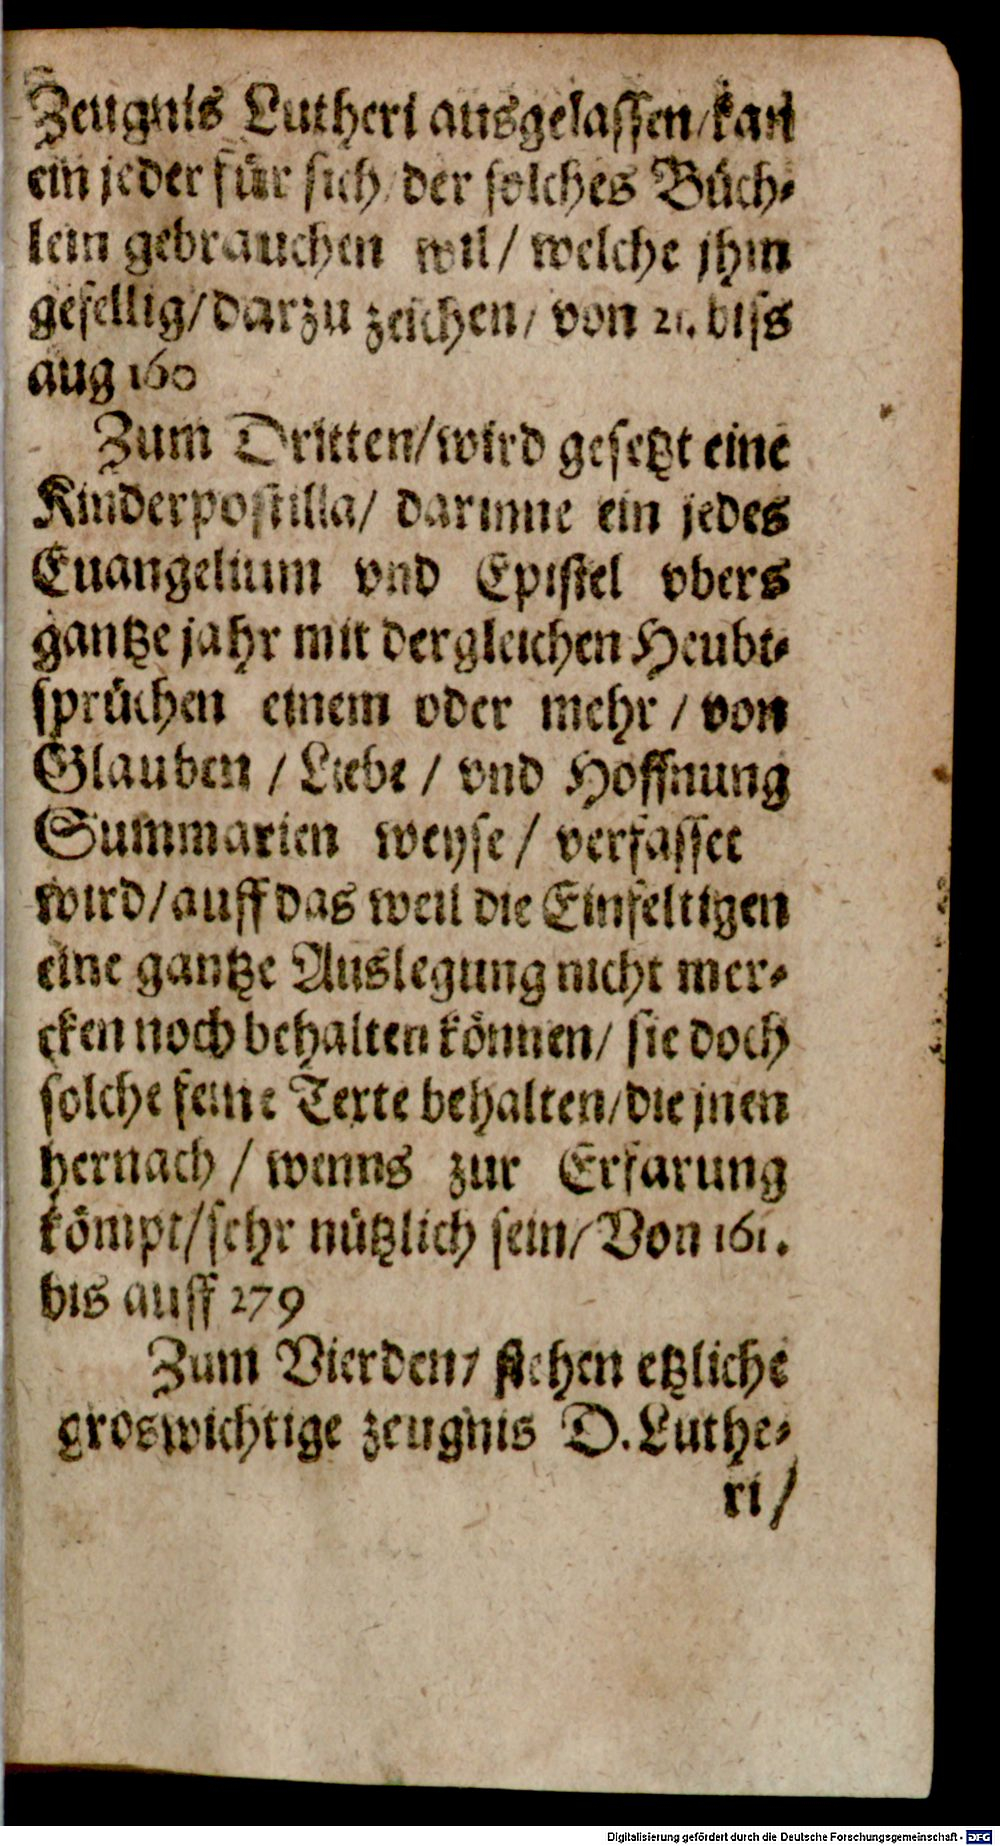 Zeugnis Lutheri ausgelassen/kan
ein jeder für sich/der solches Büch-
lein gebrauchen wil/ welche jhm
gefellig/darzu zeichen/ von 21. biss
aug 160
Zum Dritten/wird gesetzt eine
Kinderpostilla/ darinne ein jedes
Euangelium vnd Epistel vbers
gantze jahr mit dergleichen Heubt-
sprüchen einem oder mehr / von
Glauben / Liebe / vnd Hoffnung
Summarien weyse / verfasset
wird/auff das weil die Einfeltigen
eine gantze Auslegung nicht mer-
cken noch behalten können/ sie doch
solche feine Texte behalten/die jnen
hernach / wenns zur Erfarung
kömpt/sehr nützlich sein/ Von 161.
bis auff 279
Zum Vierden/ stehen etzliche
groswichtige zeugnis D. Luthe-
ri/
Digitalisierung gefördert durch die Deutsche Forschungsgemeinschaft - DFG